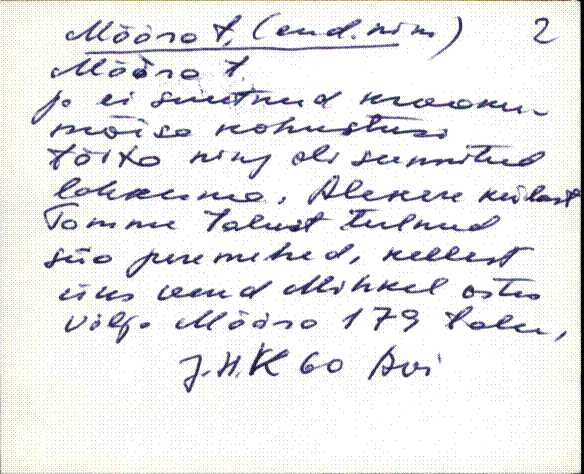 Määra t. (end. nim) 2
Määra t.
p. ei suutnud
mõisa kohustusi
täita ning oli sunnitud
lahkuma. Alekere külast
Tomme talust tulnud
siia peremehed, kellest
üks vend Mihkel ostis
välja Määra 179 talu,
J.H.K 60 Avi